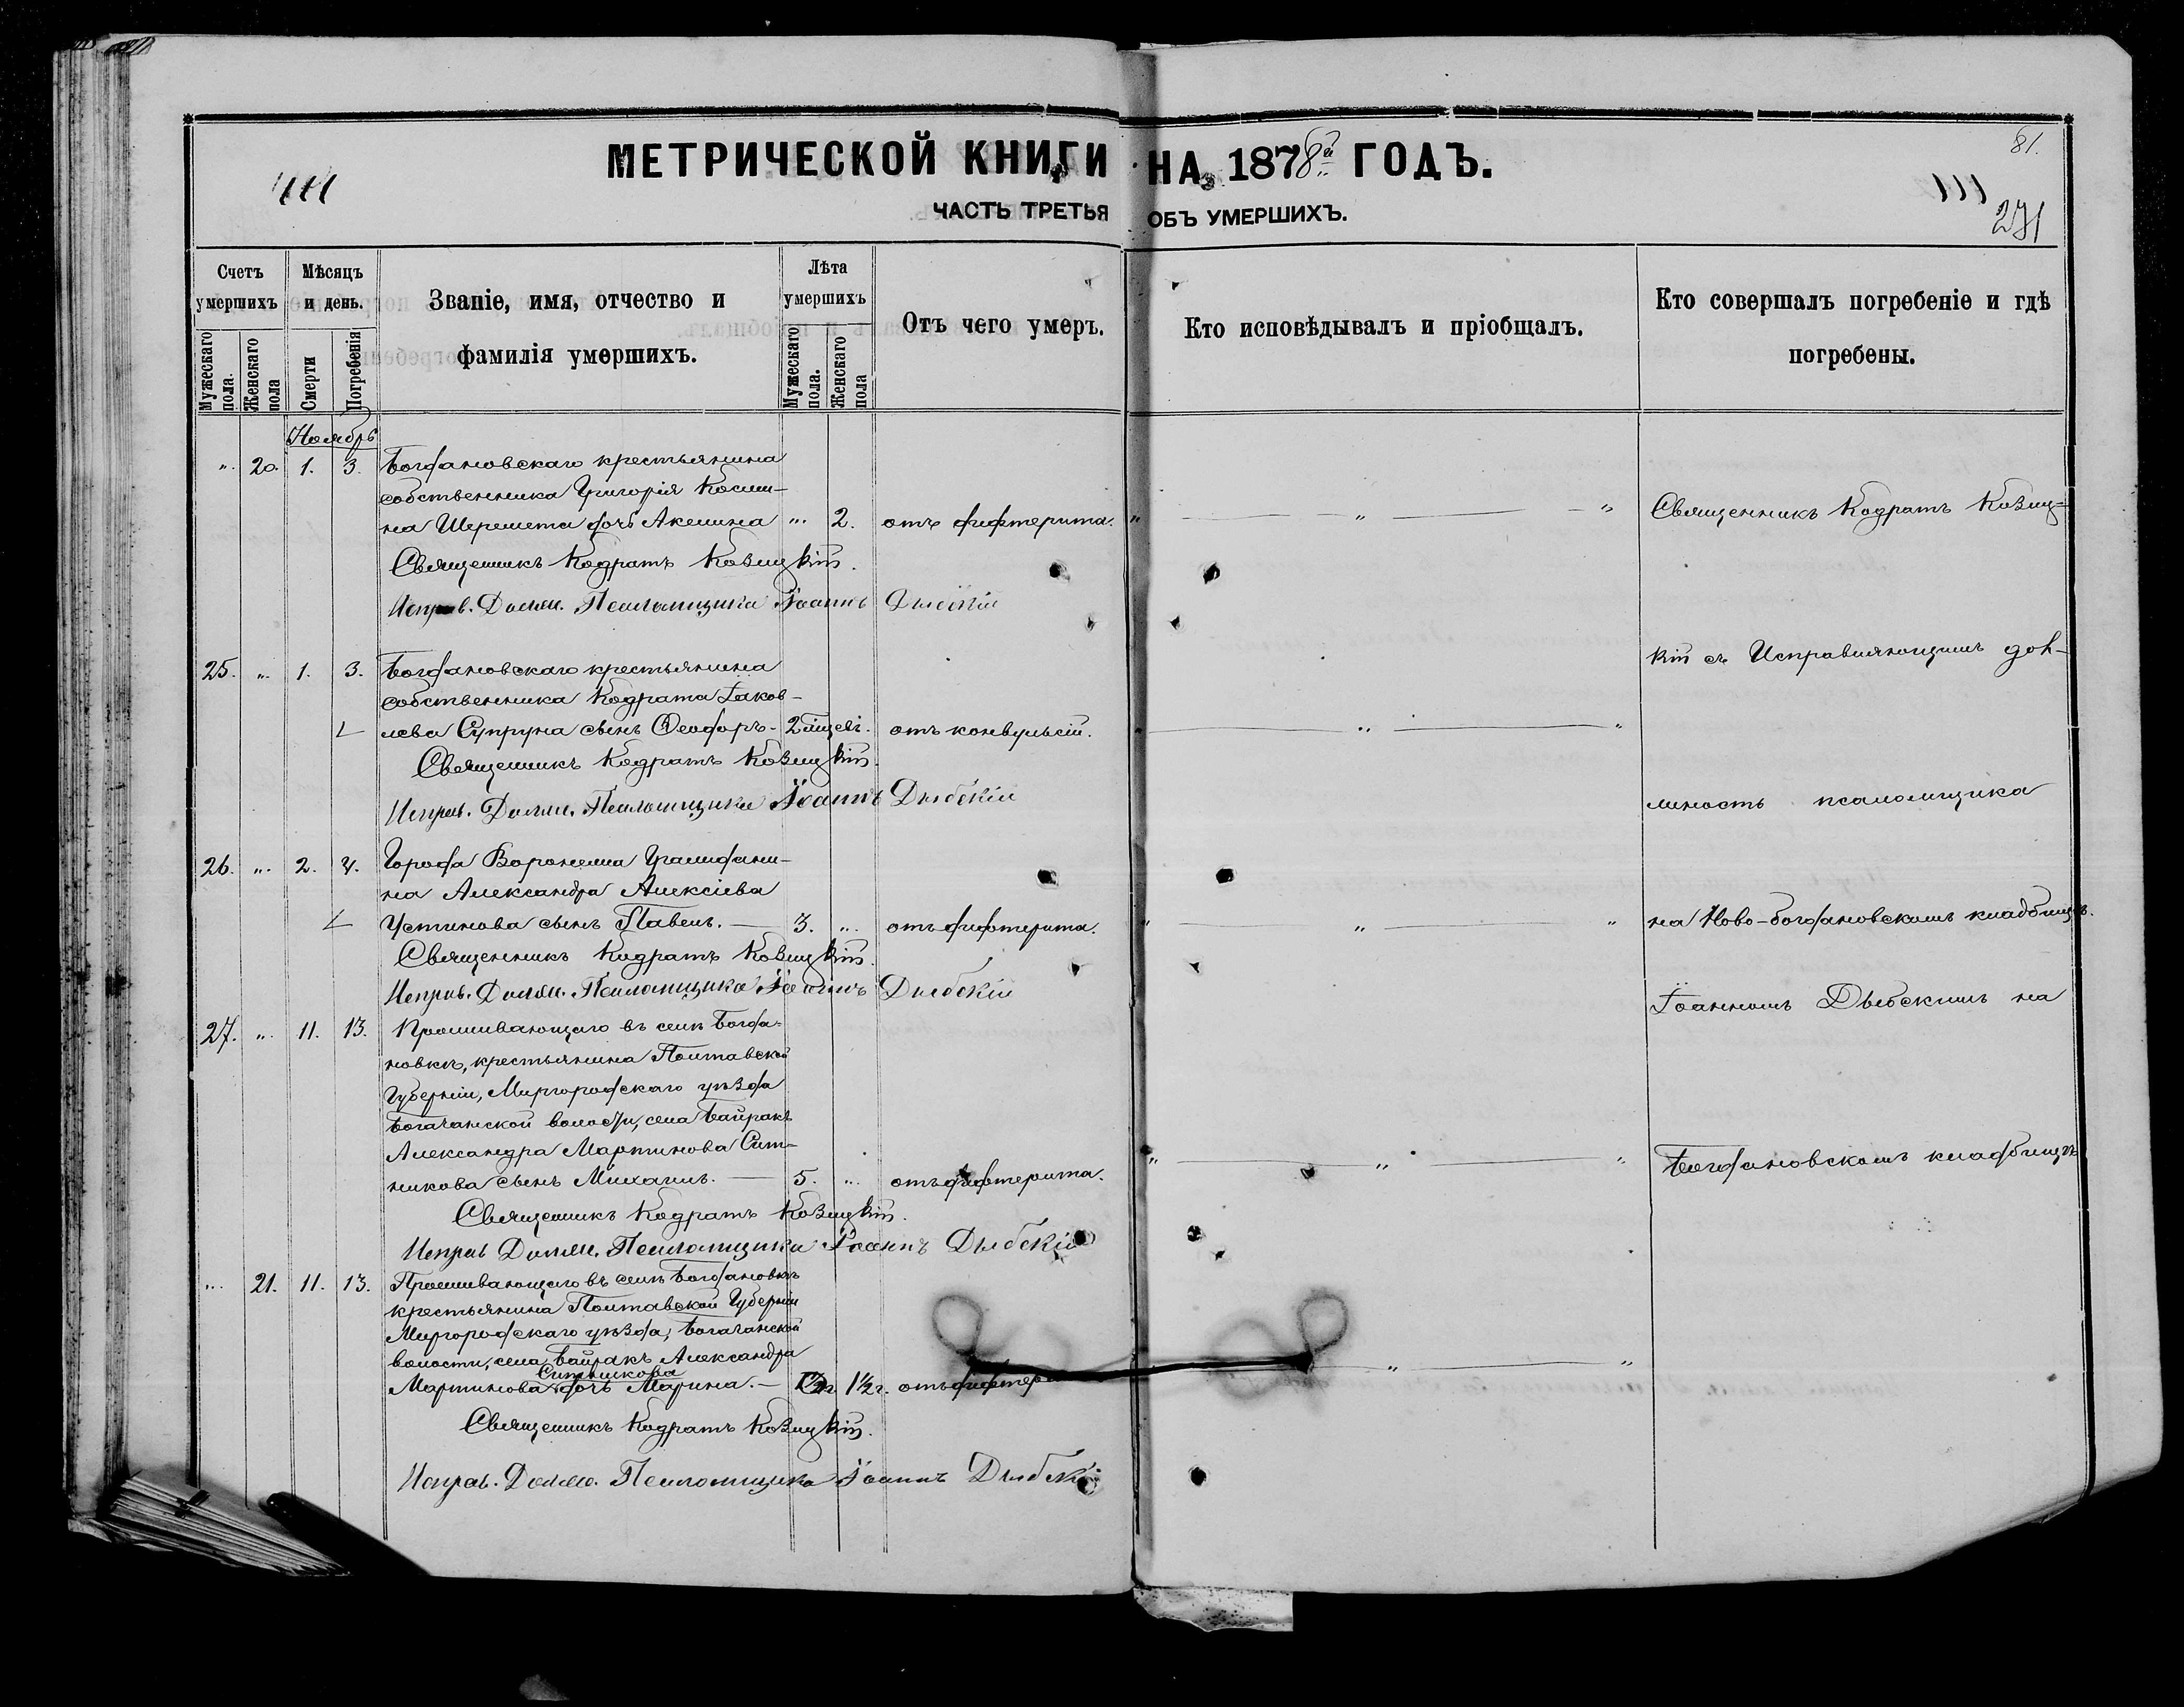 МЕТРИЧЕСКОЙ КНИГИ НА 1878й ГОДЪ.
81.
111
271
ЧАСТЬ ТРЕТЬЯ ОБЪ УМЕРШИХЪ.
Счетъ умершихъ
Мужескаго пола.
Женскаго пола
Мѣсяцъ и день.
Смерти
Погребенія
Званіе, имя, отчество и
фамилія умершихъ.
Лѣта умершихъ
Мужескаго пола.
Женскаго пола
Отъ чего умеръ.
Кто исповѣдывалъ и пріобщалъ.
Кто совершалъ погребеніе и гдѣ
погребены.
Ноябрь
". 20. 1. 3. Богдановскаго крестьянина
собственника Григорія Косми-
на Шеремета дочь Акилина ". 2. отъ дифтерита. " " "
Священникъ Кодратъ Козицкій.
Исправ. Должн. Псаломщика Іоаннъ Дыбскій
25. ". 1. 3. Богдановскаго крестьянина
собственника Кодрата Іаков-
лева Супруна сынъ Ѳеодоръ - отъ конвульсій. " "
Священникъ Кодратъ Козицкій.
Исправ. Должн. Псаломщика Іоаннъ Дыбскій
26. ". 2. 4. Города Воронежа Гражданi-
на Александра Алексіева
Устинова сынъ Павелъ. — 3. ". отъ дифтерита. " " "
Священникъ Кодратъ Козицкій.
Исправ. Должн. Псаломщика Іоаннъ Дыбскій
27. ". 11. 13. Проживающаго въ селѣ Богда-
новкѣ, крестьянина Полтавской
Губерніи, Миргородскаго уѣзда
Богачанской волости, села Байракъ
Александра Мартинова Сит-
никова сынъ Михаилъ. — 5. ". отъ дифтерита. " " "
Священникъ Кодратъ Козицкій.
Исправ Должн. Псаломщика Іоаннъ Дыбскій
". 21. 11. 13. Проживающаго въ селѣ Богдановкѣ
крестьянина Полтавской Губерніи
Миргородскаго уѣзда, Богачанской
волости, села Байракъ Александра
Ситникова
Мартинова дочь Марина. — 1½ г. отъ дифтер " "
Священникъ Кодратъ Козицкій.
Исправ. Должн. Псаломщика Іоаннъ Дыбскі
Священникъ Кодратъ Козиц-
кій съ Исправляющимъ дол-
жность псаломщика
на Ново-богдановскомъ кладбищѣ.
Іоанномъ Дыбскимъ на
Богдановскомъ кладбищѣ